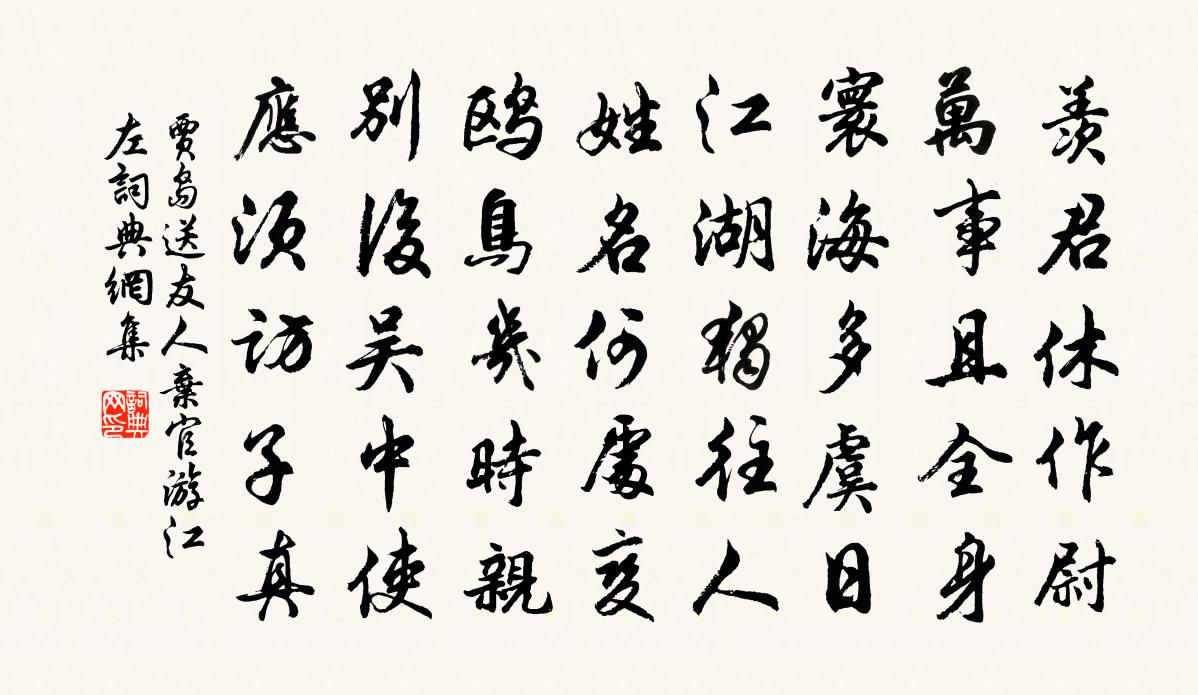 羨君休作尉
萬事且全身
寰海多虞日
江湖獨往人
姓名何處變
鷗鳥幾時親
別後吳中使
應須訪子真
賈島送友人棄官游江
左詞典網集
詞典
网印